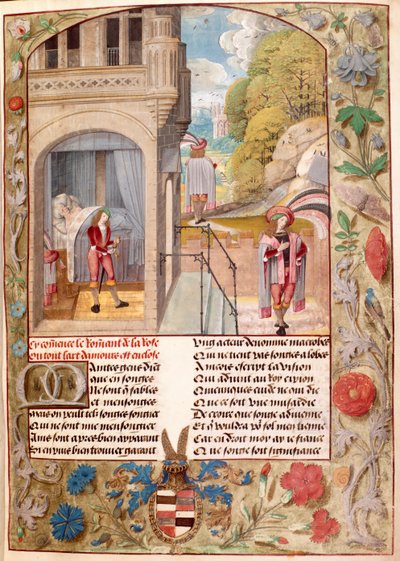 Cy comēce le Romant de la Rose
Ou tout lart damours est enclose
Maintes gens diēt
que en songes
Ne sont q̄ fables
et mensonges
Mais on peult telz songes songier
Qui ne sont mie mensongier
Ains sont apres bien apparant
Si en puis bien trouuer garant
Vng acteur denomme macrobes
Qui ne tient pas songes a lobes
Aincois escript la vision
Qui aduint au roy cipion
Quicunques cuide ne qui die
Que ce soit vne musardie
De croire que songe aduienne
Et q̄ vouldra po᷑ fol men tienne
Car endroit moy ay ie fiance
Que songe soit signifiance